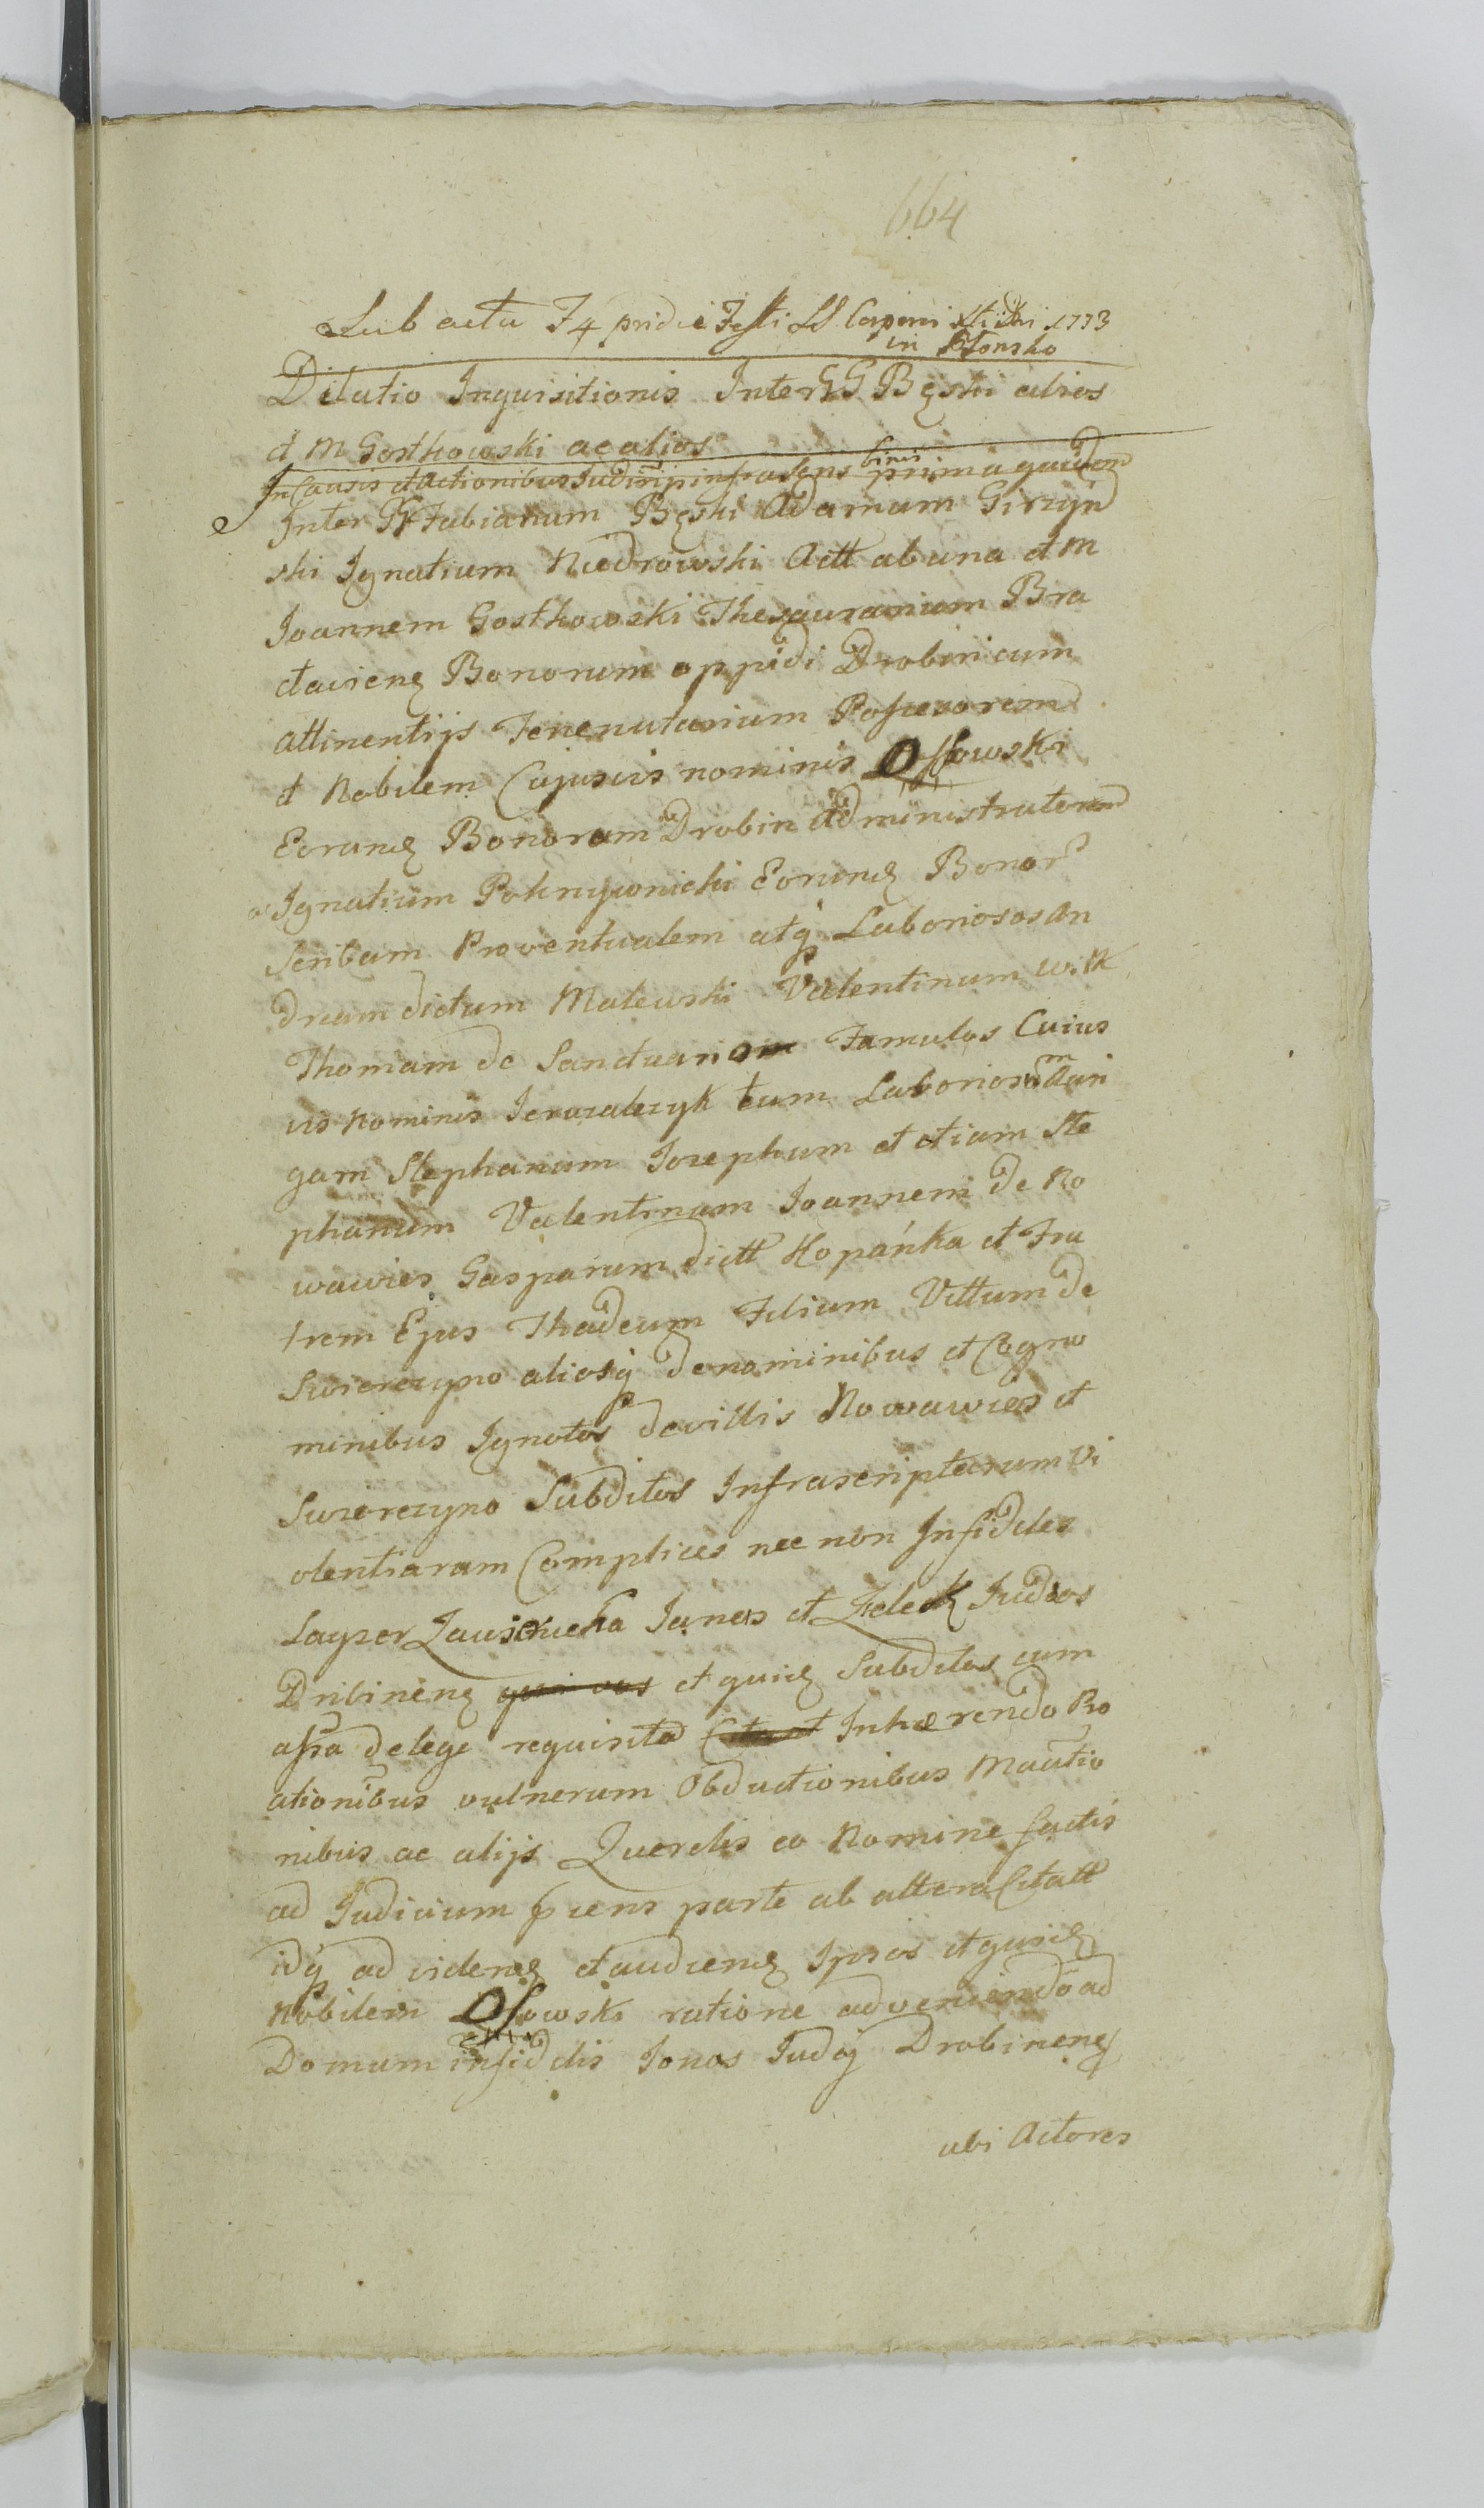 664
Sub actu F4 pridie Festi SS Corporis Xti 1773
in Płonsko
Dilatio Inquisitionis Inter GG Bęski alios
et M Gostkowski ac alios
In Causis et Actionibus binis prima quidem
Inter GG Fabianum Bęski Adamum Girzyń
ski Ignatium Niedrowski Actt ab una et M
Joannem Gostkowski Thesaurarium Bra
claviens Bonorum oppidi Drobin cum
attinentijs Tenenutarium Possessorem
et Nobilem Cujusvis nominis Ossowski
Eorund Bonorum Drobin Administratorem
Ignatium Pokrzywnicki Eorund Bonor
Scribam Proventualem atq Laboriosos An
dream dictum Malewski Valentinum Wilk
Thomam de Sanctuario Famulos Cuius
vis Nominis Jerozalczyk tum Laboriosum
gam Stephanum Josephum et etiam Ste
phanum Valentinum Joannem de No
wawies Gasparum dictt Kopańka et Fra
trem Ejus Thadeum Filium Vittum de
Swierczyno aliosq de nominibus et Cogno
minibus Ignotos de villis Nowawies et
Swierczyno Subditos Infrascriptarum Vi
olentiarum Complices nec non Infideles
Layzer Jonas et Judeos
Drobinens et quid Subditos cum
assa de lege requisita Inhærendo Ro
ationibus vulnerum Obductionibus
nibus ac alijs Querelis eo Nomine factis
ad Judicium parte ab altera Citatt
idq ad vidend et audiend Ipsos et quid
Nobilem Ossowski ratione adveniendo ad
Domum infidelis Jonas Judej Drobinens
ubi Actores